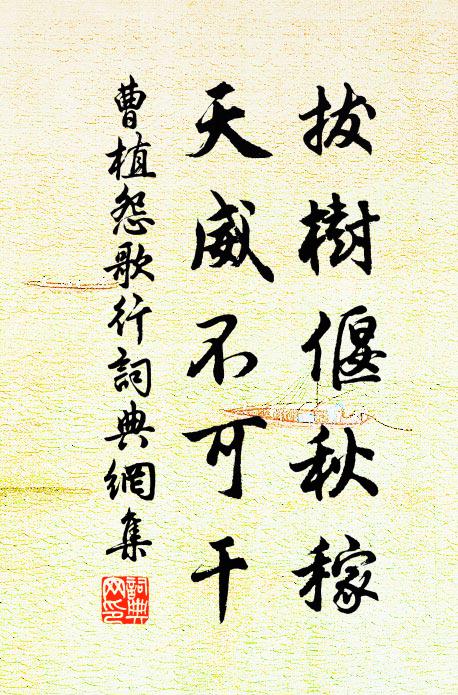 拔樹偃秋稼
天威不可干
曹植怨歌行詞典網集
詞典網印